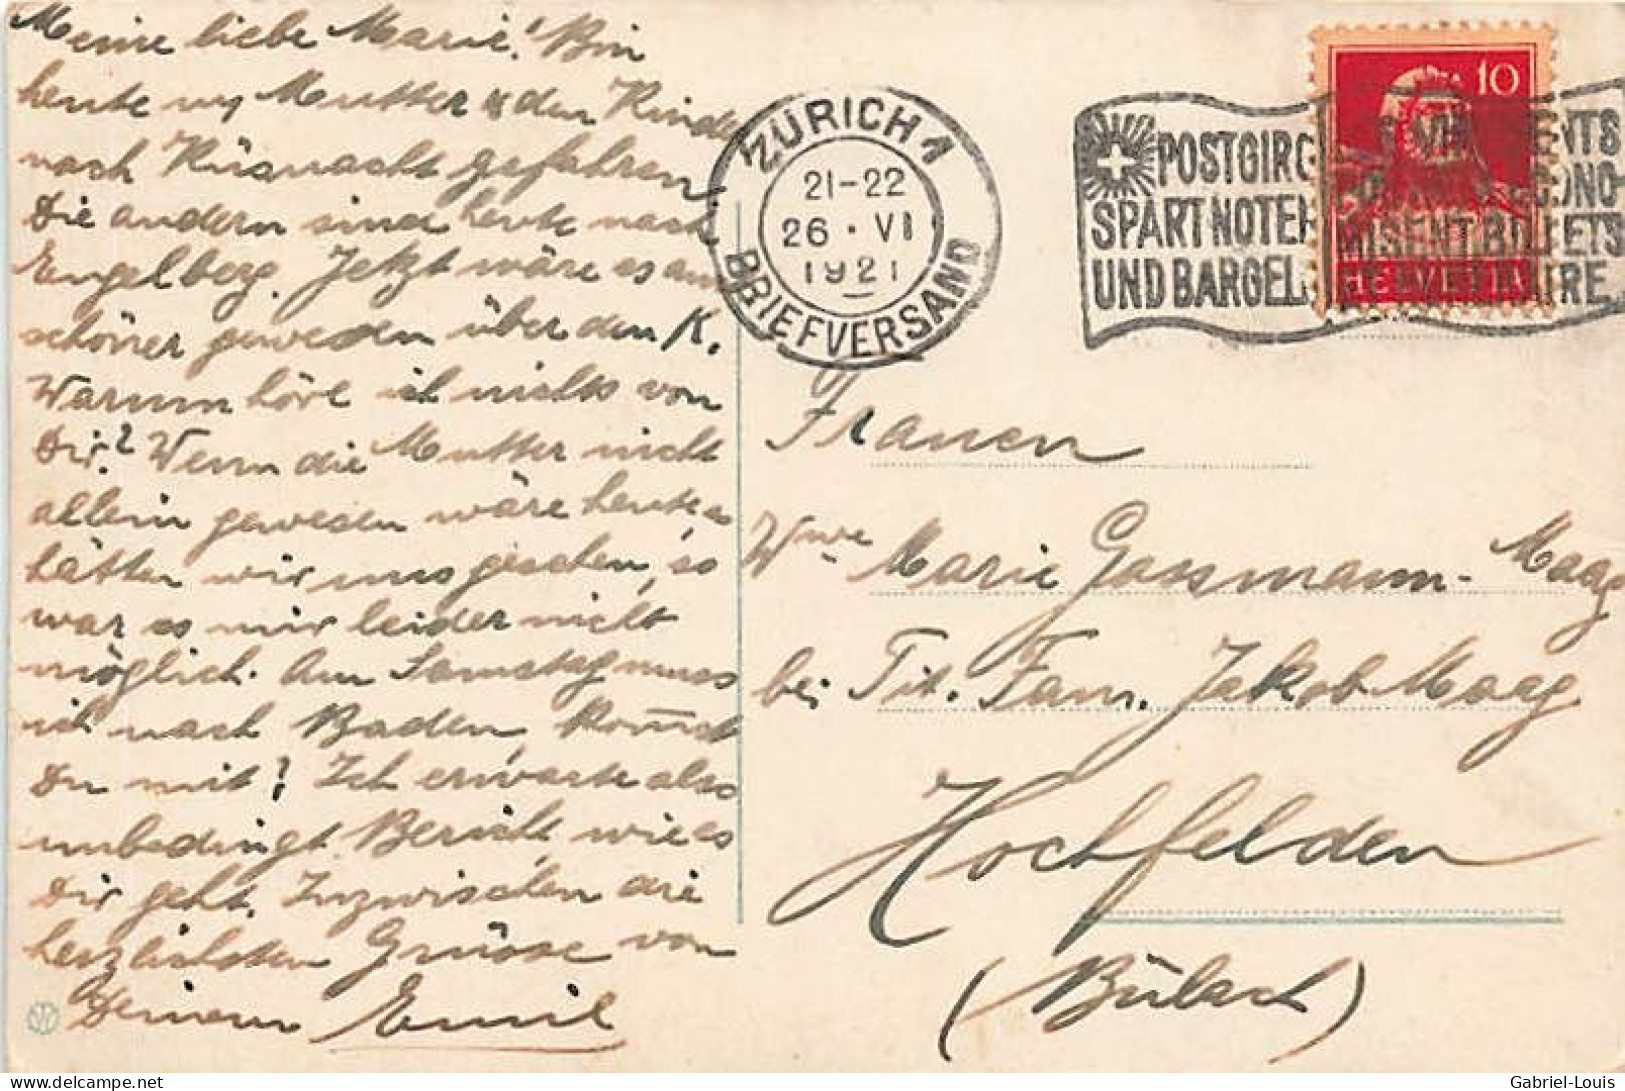 Meine liebe Marie! Bin
heute m/ Mutter & den Kinder
nach Küsnacht gefahren
Die andern sind heute nach
Engelberg. Jetzt wäre es am
schöner gewesen über den K.
Warum höre ich nichts von
Dir? Wenn die Mutter nicht
allein gewesen wäre heute so
hätten wir uns gesehen, so
war es mir leider nicht
möglich. Am Samstag muss
ich nach Baden, kommst
Du mit? Ich erwarte also
unbedingt Bericht, wie es
Dir geht. Inzwischen die
herzlichsten Grüsse von
Deinem Emil
ZÜRICH 1
21-22
26 · VI
1921
BRIEFVERSAND
POSTGIRO
SPART NOTEN
UND BARGELD
10
HELVETIA
BILLETS
Frauen
Wwe Marie Gassmann-Maag
bei Tit. Fam. Jakob Maag
Hochfelden
(Bülach)
Gabriel-Louis